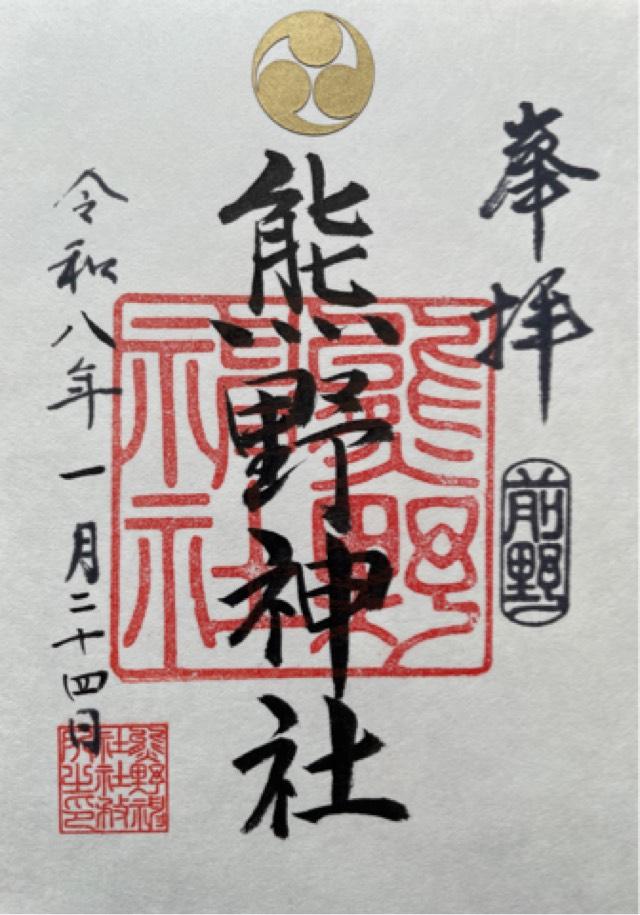 奉拝
前野
熊野神社
熊野神社
令和八年一月二十四日
熊野神
社社務
所之印